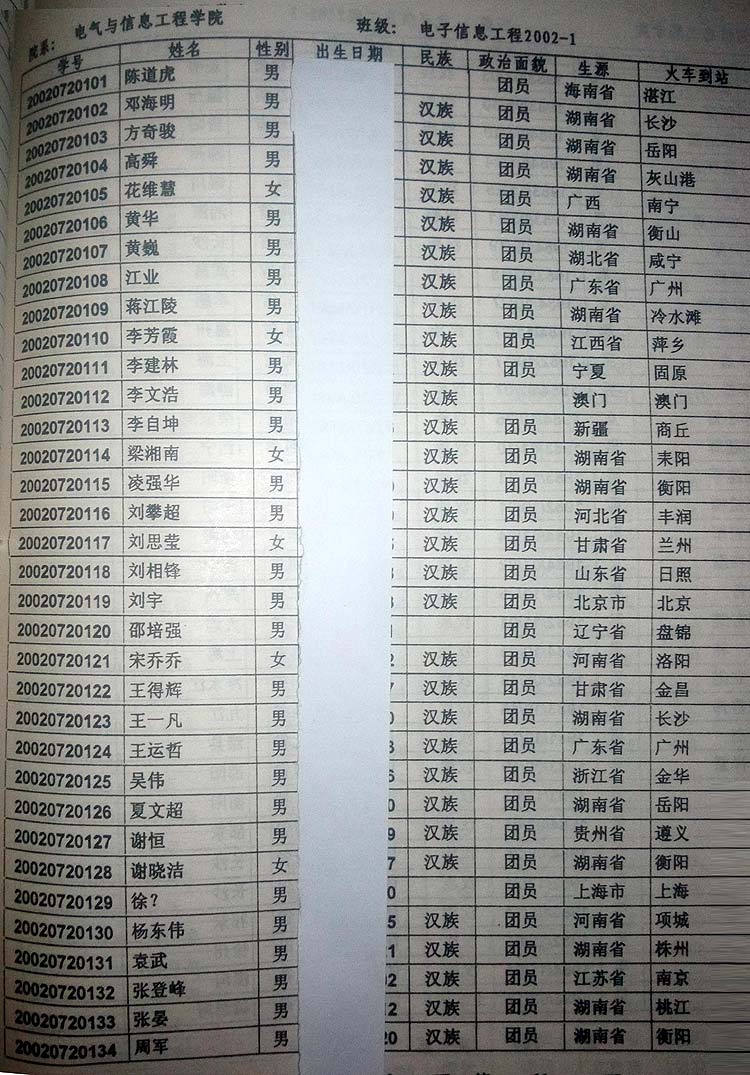 院系: 电气与信息工程学院 班级: 电子信息工程2002-1
学号 姓名 性别 出生日期 民族 政治面貌 生源 火车到站
20020720101 陈道虎 男 团员 海南省 湛江
20020720102 邓海明 男 汉族 团员 湖南省 长沙
20020720103 方奇骏 男 汉族 团员 湖南省 岳阳
20020720104 高舜 男 汉族 团员 湖南省 灰山港
20020720105 花维慧 女 汉族 团员 广西 南宁
20020720106 黄华 男 汉族 团员 湖南省 衡山
20020720107 黄巍 男 汉族 团员 湖北省 咸宁
20020720108 江业 男 汉族 团员 广东省 广州
20020720109 蒋江陵 男 汉族 团员 湖南省 冷水滩
20020720110 李芳霞 女 汉族 团员 江西省 萍乡
20020720111 李建林 男 汉族 团员 宁夏 固原
20020720112 李文浩 男 汉族 澳门 澳门
20020720113 李自坤 男 汉族 团员 新疆 商丘
20020720114 梁湘南 女 汉族 团员 湖南省 耒阳
20020720115 凌强华 男 汉族 团员 湖南省 衡阳
20020720116 刘攀超 男 汉族 团员 河北省 丰润
20020720117 刘思莹 女 汉族 团员 甘肃省 兰州
20020720118 刘相锋 男 汉族 团员 山东省 日照
20020720119 刘宇 男 汉族 团员 北京市 北京
20020720120 邵培强 男 团员 辽宁省 盘锦
20020720121 宋乔乔 女 2 汉族 团员 河南省 洛阳
20020720122 王得辉 男 7 汉族 团员 甘肃省 金昌
20020720123 王一凡 男 0 汉族 团员 湖南省 长沙
20020720124 王运哲 男 3 汉族 团员 广东省 广州
20020720125 吴伟 男 6 汉族 团员 浙江省 金华
20020720126 夏文超 男 0 汉族 团员 湖南省 岳阳
20020720127 谢恒 男 9 汉族 团员 贵州省 遵义
20020720128 谢晓洁 女 7 汉族 团员 湖南省 衡阳
20020720129 徐? 男 0 团员 上海市 上海
20020720130 杨东伟 男 5 汉族 团员 河南省 项城
20020720131 袁武 男 1 汉族 团员 湖南省 株州
20020720132 张登峰 男 02 汉族 团员 江苏省 南京
20020720133 张晏 男 12 汉族 团员 湖南省 桃江
20020720134 周军 男 20 汉族 团员 湖南省 衡阳